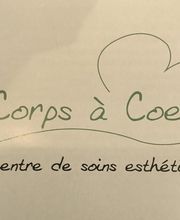 Corps à Coe
entre de soins esthét